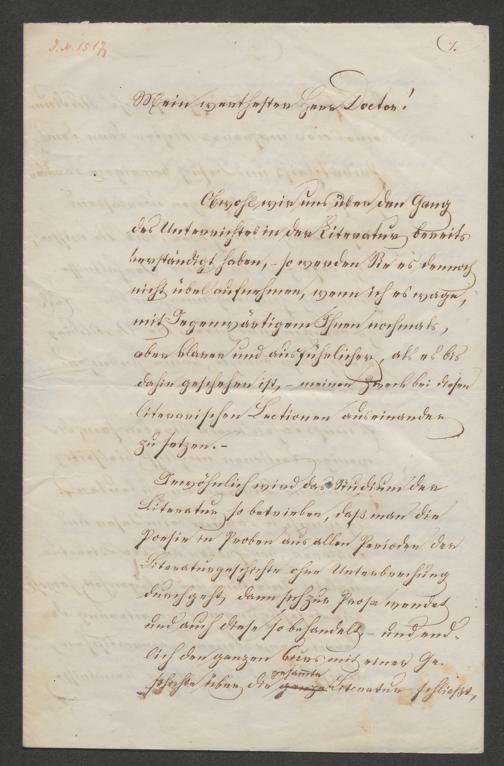 J. N. 1517
1.
Mein werthester Herr Doctor!
Obwohl wir uns über den Gang
des Unterrichtes in der Literatur bereits
verständigt haben, – so werden Sie es dennoch
nicht übel aufnehmen, wenn ich es wage,
mit Gegenwärtigem Ihnen nochmals,
aber klarer und ausführlicher, als es bis
dahin geschehen ist, – meinen Zweck bei diesen
literarischen Lectionen auseinander
zu setzen. –
Gewöhnlich wird das Studium der
Literatur so betrieben, daß man die
Poesie in Proben aus allen Perioden der
Literaturgeschichte ohne Unterbrechung
durchgeht, dann sich zur Prosa wendet
und auch diese so behandelt – und end-
lich den ganzen Curs mit einer Ge-
schichte über die ganze gesamte Literatur schließt,